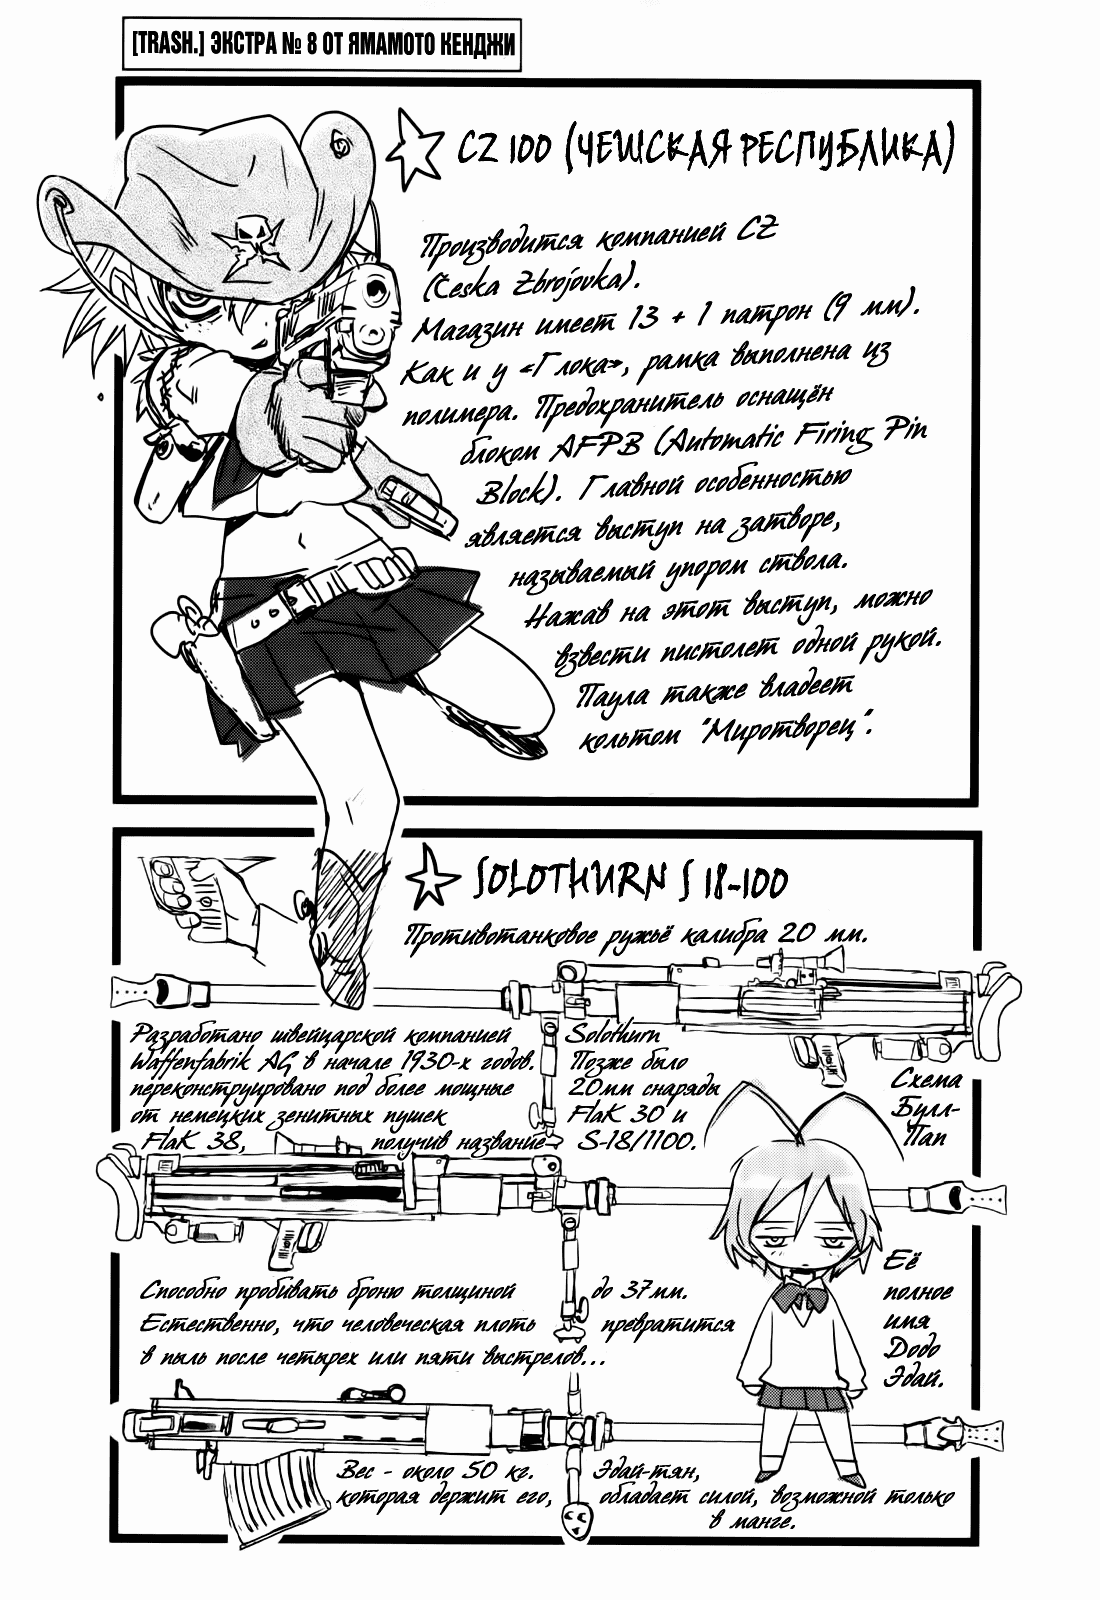 [TRASH.] ЭКСТРА № 8 ОТ ЯМАМОТО КЕНДЖИ
CZ 100 (ЧЕШСКАЯ РЕСПУБЛИКА)
Производится компанией CZ
(Ceska Zbrojovka).
Магазин имеет 13 + 1 патрон (9 мм).
Как и у «Глока», рамка выполнена из
полимера. Предохранитель оснащён
блоком AFPB (Automatic Firing Pin
Block). Главной особенностью
является выступ на затворе,
называемый упором ствола.
Нажав на этот выступ, можно
взвести пистолет одной рукой.
Паула также владеет
кольтом "Миротворец".
SOLOTHURN S 18-100
Противотанковое ружьё калибра 20 мм.
Разработано швейцарской компанией Solothurn
Waffenfabrik AG в начале 1930-х годов. Позже было
переконструировано под более мощные 20мм снаряды
от немецких зенитных пушек FlaK 30 и
FlaK 38, получив название S-18/1100.
Схема
Булл-
Пап
Способно пробивать броню толщиной до 37мм.
Естественно, что человеческая плоть превратится
в пыль после четырех или пяти выстрелов...
Её
полное
имя
Додо
Эдай.
Вес - около 50 кг. Эдай-тян,
которая держит его, обладает силой, возможной только
в манге.